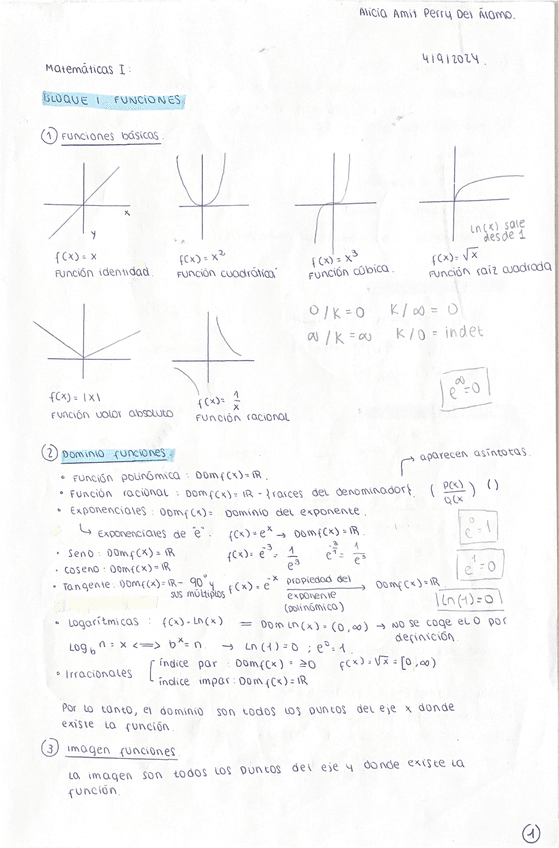 Alicia Amit Perry Del Álamo.
4/9/2024.
Matemáticas I:
BLOQUE I. FUNCIONES.
① Funciones básicas.
x
y
ln(x) sale
desde 1
f(x) = x
f(x) = x²
f(x) = x³
f(x) = √x
Función identidad.
Función cuadrática
Función cúbica.
Función raíz cuadrada
0/K = 0 K/∞ = 0
∞/K = ∞ K/0 = indet
e^∞ = 0
f(x) = |x|
f(x) = 1/x
Función valor absoluto
Función racional
② Dominio funciones.
→ aparecen asíntotas.
• Función polinómica: Dom f(x) = ℝ.
• Función racional: Dom f(x) = ℝ - {raíces del denominador}. (P(x)/Q(x)) ()
• Exponenciales: Dom f(x) = Dominio del exponente.
↳ Exponenciales de "e". f(x) = e^x → Dom f(x) = ℝ.
e^0 = 1
• Seno: Dom f(x) = ℝ f(x) = e^-3 = 1/e^3
• Coseno: Dom f(x) = ℝ
e^1 = 0
• Tangente: Dom f(x) = ℝ - 90° y sus múltiplos f(x) = e^-x propiedad del exponente (polinómico) → Dom f(x) = ℝ
ln(1) = 0
• Logarítmicas: f(x) = ln(x) = Dom ln(x) = (0, ∞) → No se coge el 0 por definición.
Log_b n = x <=> b^x = n. → ln(1) = 0 ; e^0 = 1.
• Irracionales { índice par: Dom f(x) = ≥0 f(x) = √x = [0, ∞)
índice impar: Dom f(x) = ℝ
Por lo tanto, el dominio son todos los puntos del eje x donde
existe la función.
③ Imagen funciones
La imagen son todos los puntos del eje y donde existe la
función.
①